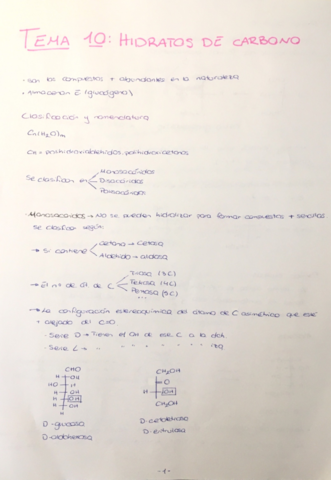 TEMA 10: HIDRATOS DE CARBONO
· Son los compuestos + abundantes en la naturaleza
· Almacenan E (glucógeno)
Clasificación y nomenclatura
Cn(H2O)m
CH = polihidroxialdehídos, polihidroxicetonas
Se clasifican en
Monosacáridos
Disacáridos
Polisacáridos
· Monosacáridos → No se pueden hidrolizar para formar compuestos + sencillos
Se clasifican según:
→ Si contiene
cetona → Cetosa
Aldehído → aldosa
→ El nº de át de C
Triosa (3C)
Tetrosa (4C)
Pentosa (5C)
...
→ La configuración estereoquímica del átomo de C asimétrico que esté
+ alejado del C=O
· Serie D → Tienen el OH de ese C a la dcha
· Serie L → " " " " " " " izq
CHO
H OH
HO H
H OH
H OH
OH
D-glucosa
D-aldohexosa
CH2OH
O
H OH
CH2OH
D-cetotetrosa
D-eritrulosa
-1-